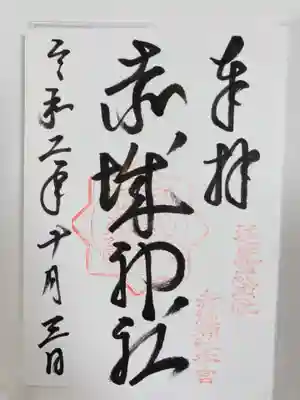 奉拝
赤城神社
令和二年十月三日